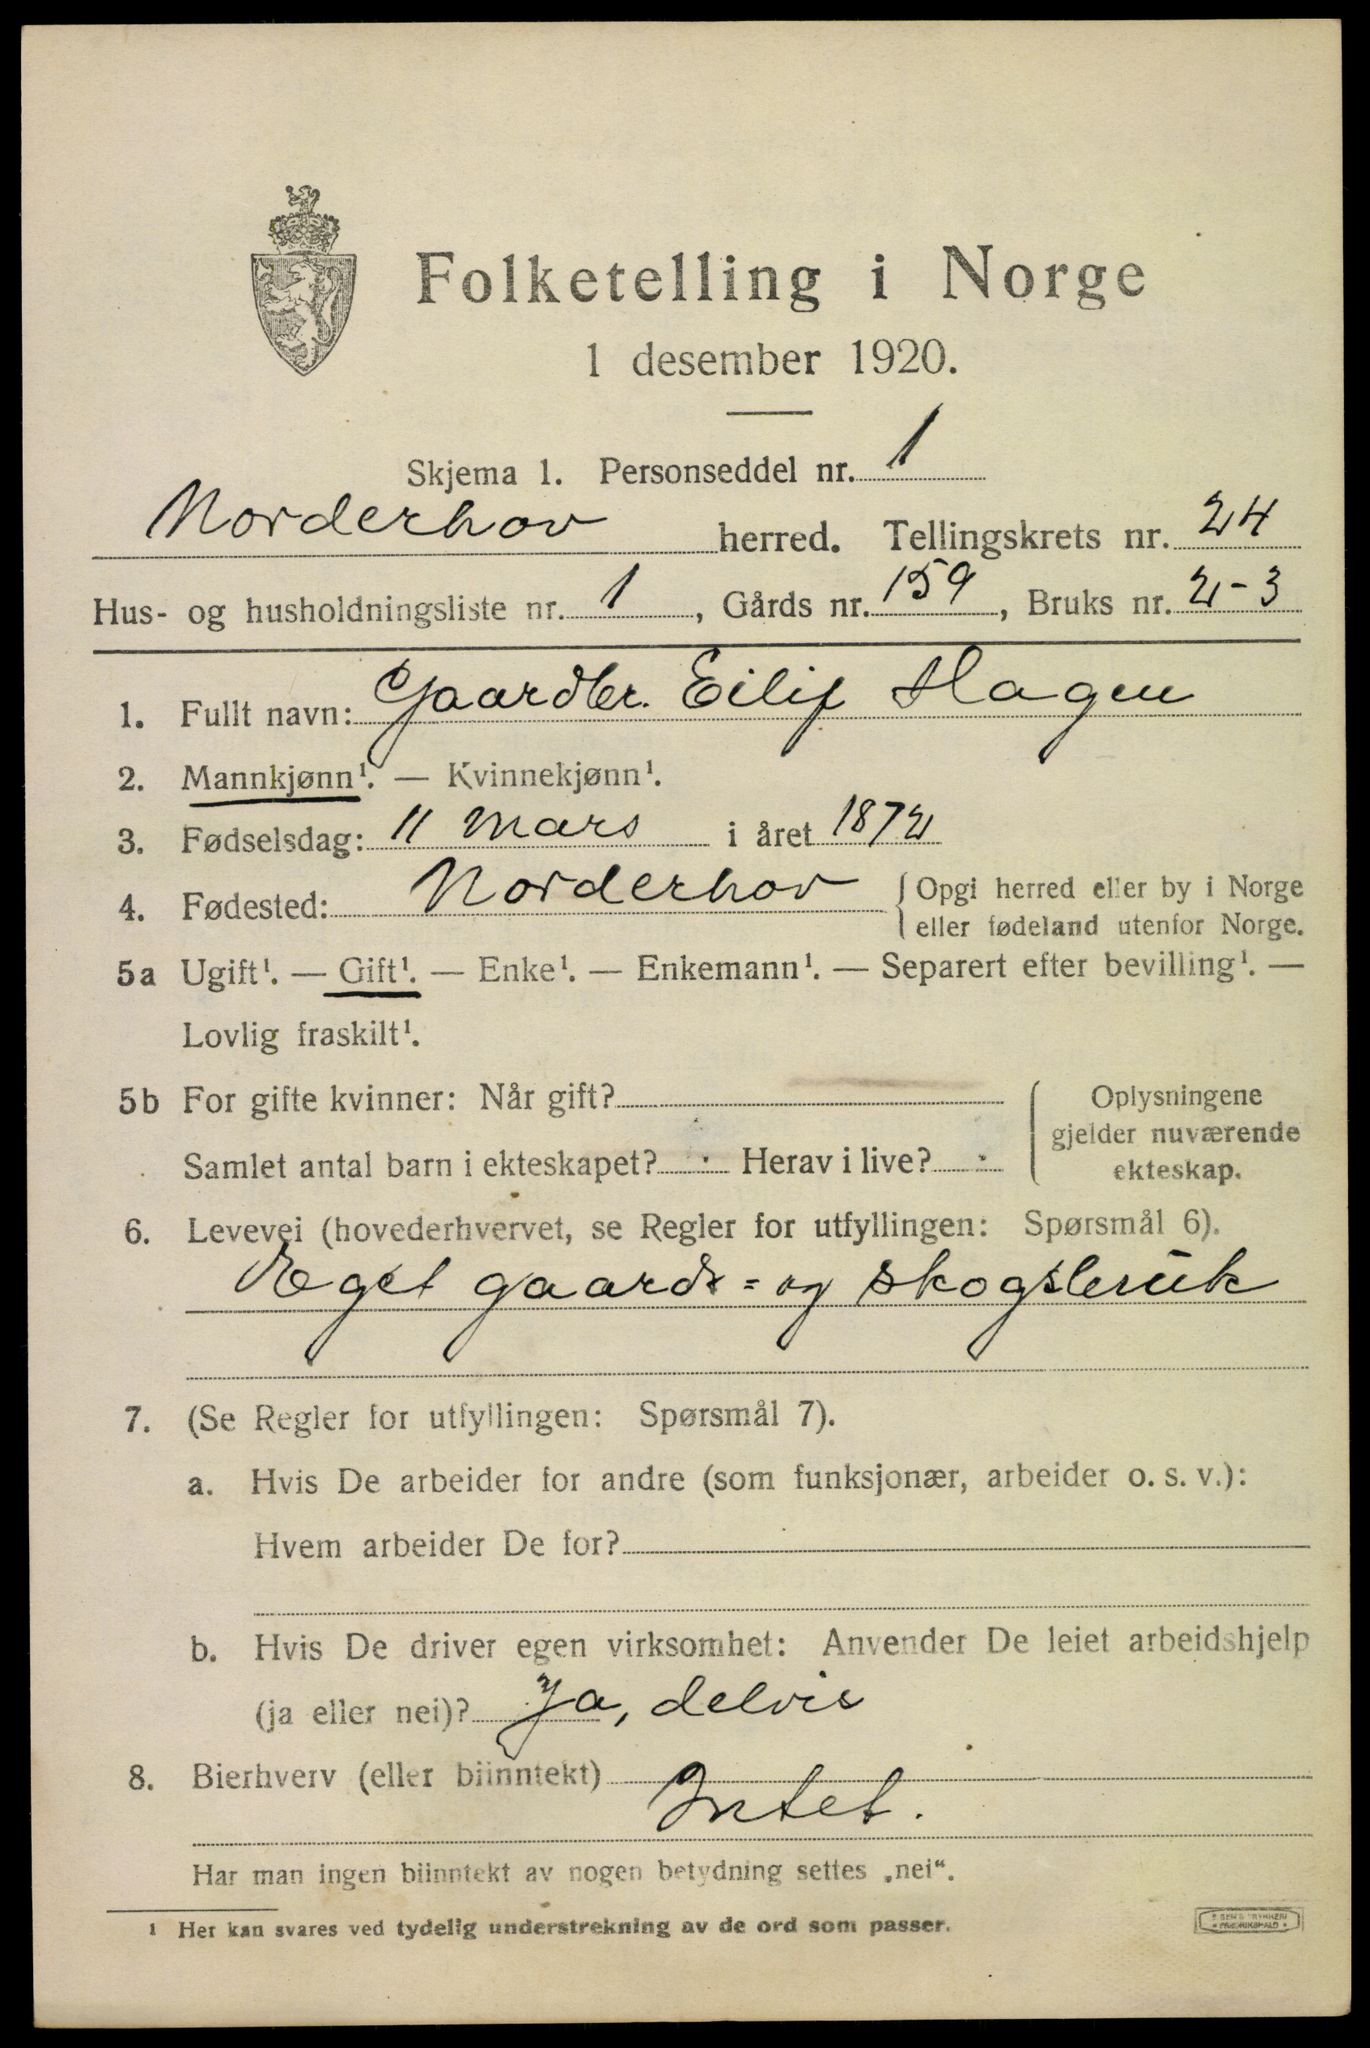 Folketelling i Norge
1 desember 1920.
Skjema 1. Personseddel nr. 1
Norderhov herred. Tellingskrets nr. 24
Hus- og husholdningsliste nr. 1, Gårds nr. 159, Bruks nr. 2-3
1. Fullt navn: Gaardbr. Eilif Hagen
2. Mannkjønn¹. — Kvinnekjønn¹.
3. Fødselsdag: 11 mars i året 1872
4. Fødested: Norderhov { Opgi herred eller by i Norge
eller fødeland utenfor Norge.
5a Ugift¹. — Gift¹. — Enke¹. — Enkemann¹. — Separert efter bevilling¹. —
Lovlig fraskilt¹.
5b For gifte kvinner: Når gift?
Samlet antal barn i ekteskapet? Herav i live?
Oplysningene
gjelder nuværende
ekteskap.
6. Levevei (hovederhvervet, se Regler for utfyllingen: Spørsmål 6).
Eget gaards= og skogsbruk
7. (Se Regler for utfyllingen: Spørsmål 7).
a. Hvis De arbeider for andre (som funksjonær, arbeider o. s. v.):
Hvem arbeider De for?
b. Hvis De driver egen virksomhet: Anvender De leiet arbeidshjelp
(ja eller nei)? Ja, delvis
8. Bierhverv (eller biinntekt)
Intet.
Har man ingen biinntekt av nogen betydning settes „nei“.
¹ Her kan svares ved tydelig understrekning av de ord som passer.